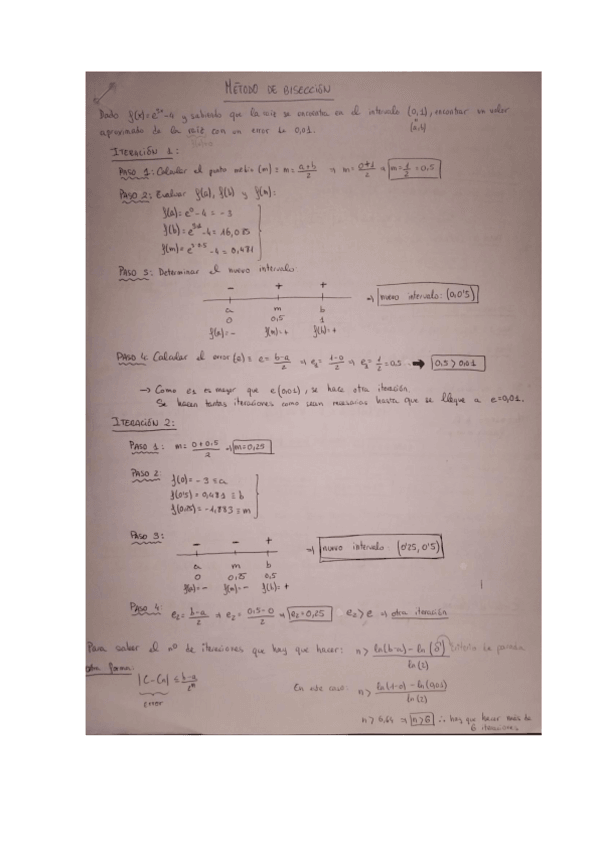 MÉTODO DE BISECCIÓN
Dado f(x)=e^3x-4 y sabiendo que la raíz se encuentra en el intervalo (0,1), encontrar un valor
(a,b)
aproximado de la raíz con un error de 0,01.
ITERACIÓN 1:
PASO 1: Calcular el punto medio (m) = m = a+b/2 → m = 0+1/2 → m = 1/2 = 0,5
PASO 2: Evaluar f(a), f(b) y f(m):
f(a) = e^0 - 4 = -3
f(b) = e^3·1 - 4 = 16,085
f(m) = e^3·0.5 - 4 = 0,481
PASO 3: Determinar el nuevo intervalo:
- + +
a m b
0 0,5 1
f(a)=- f(m)=+ f(b)=+
→ nuevo intervalo: (0,0'5)
PASO 4: Calcular el error (e) = e = b-a/2 → e1 = 1-0/2 → e1 = 1/2 = 0.5 → 0.5 > 0.01
→ Como e1 es mayor que e (0,01), se hace otra iteración.
Se hacen tantas iteraciones como sean necesarias hasta que se llegue a e=0,01.
ITERACIÓN 2:
PASO 1: m = 0+0,5/2 → m=0,25
PASO 2: f(0) = -3 ≡ a
f(0'5) = 0,481 ≡ b
f(0,25) = -1,883 ≡ m
PASO 3:
- - +
a m b
0 0,25 0,5
f(a)=- f(m)=- f(b)=+
→ nuevo intervalo (0'25, 0'5)
PASO 4: e2 = b-a/2 → e2 = 0,5-0/2 → e2=0,25 e2 > e → otra iteración
Para saber el nº de iteraciones que hay que hacer: n > ln(b-a) - ln(δ)/ln(2) criterio de parada
otra forma:
|C-Cn| ≤ b-a/2^n
error
En este caso: n > ln(1-0) - ln(0,01)/ln(2)
n > 6,64 → n>6 ∴ hay que hacer más de
6 iteraciones